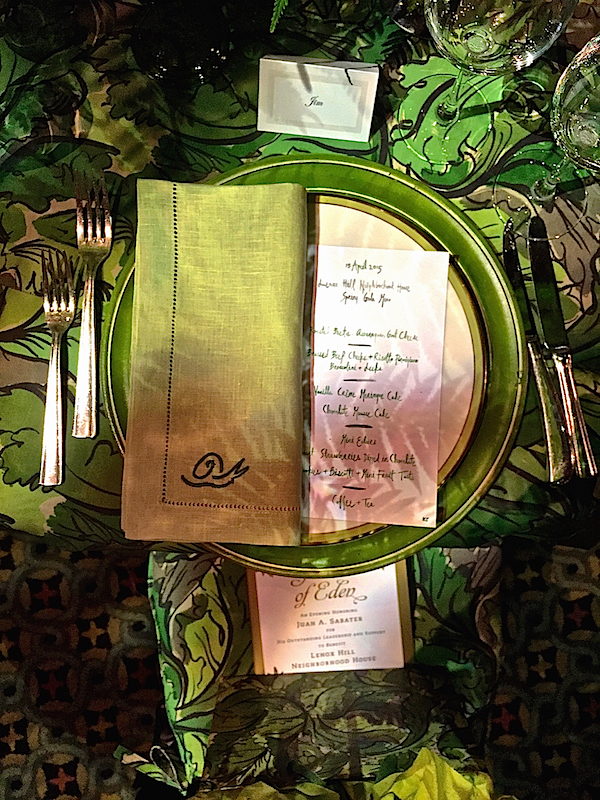 Jim
April 2015
Hill Neighborhood House
Spring Gala Menu
Beets Goat Cheese
Beef Chops + Risotto
+ Leeks
Vanilla Crème Meringue Cake
Chocolate Mousse Cake
Mini
Strawberries Dipped in Chocolate
+ Biscotti + Mini Fruit Tarts
Coffee + Tea
of Eden
An Evening Honoring
Juan A. Sabater
for
His Outstanding Leadership and Support
to Benefit
Lenox Hill
Neighborhood House